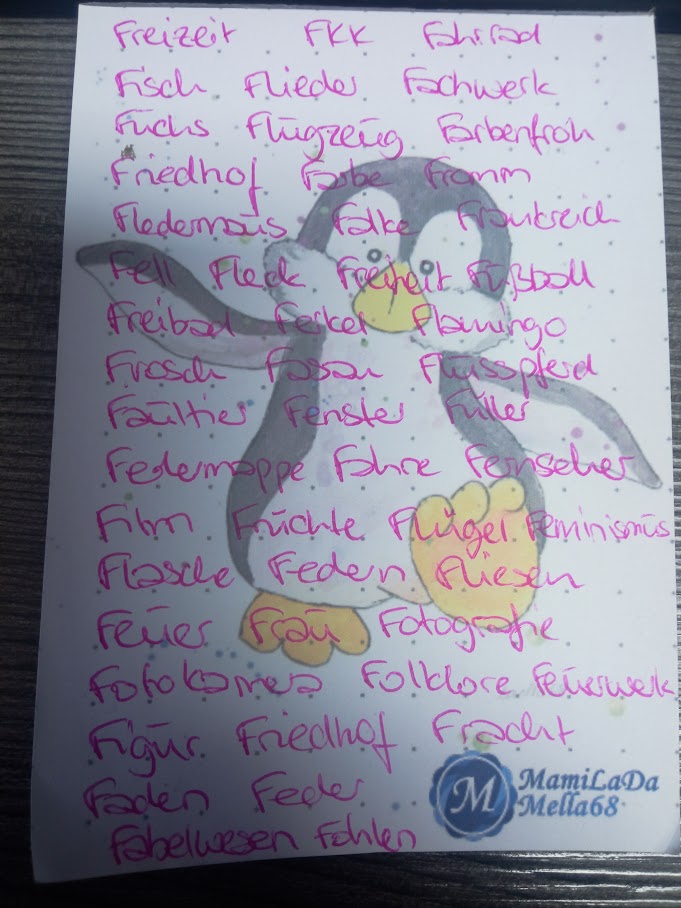 Freizeit FKK Fahrrad
Fisch Flieder Fachwerk
Fuchs Flugzeug Farbenfroh
Friedhof Farbe Fromm
Fledermaus Falke Frankreich
Fell Fleck Freiheit Fußball
Freibad Ferkel Flamingo
Frosch Fasan Flusspferd
Faultier Fenster Füller
Federmappe Fahne Fernseher
Film Früchte Flügel Feminismus
Flasche Federn Fliesen
Feuer Frau Fotografie
Fotokamera Folklore Feuerwerk
Figur Friedhof Fracht
Faden Feder
Fabelwesen Fohlen
M MamiLaDa
Mella68